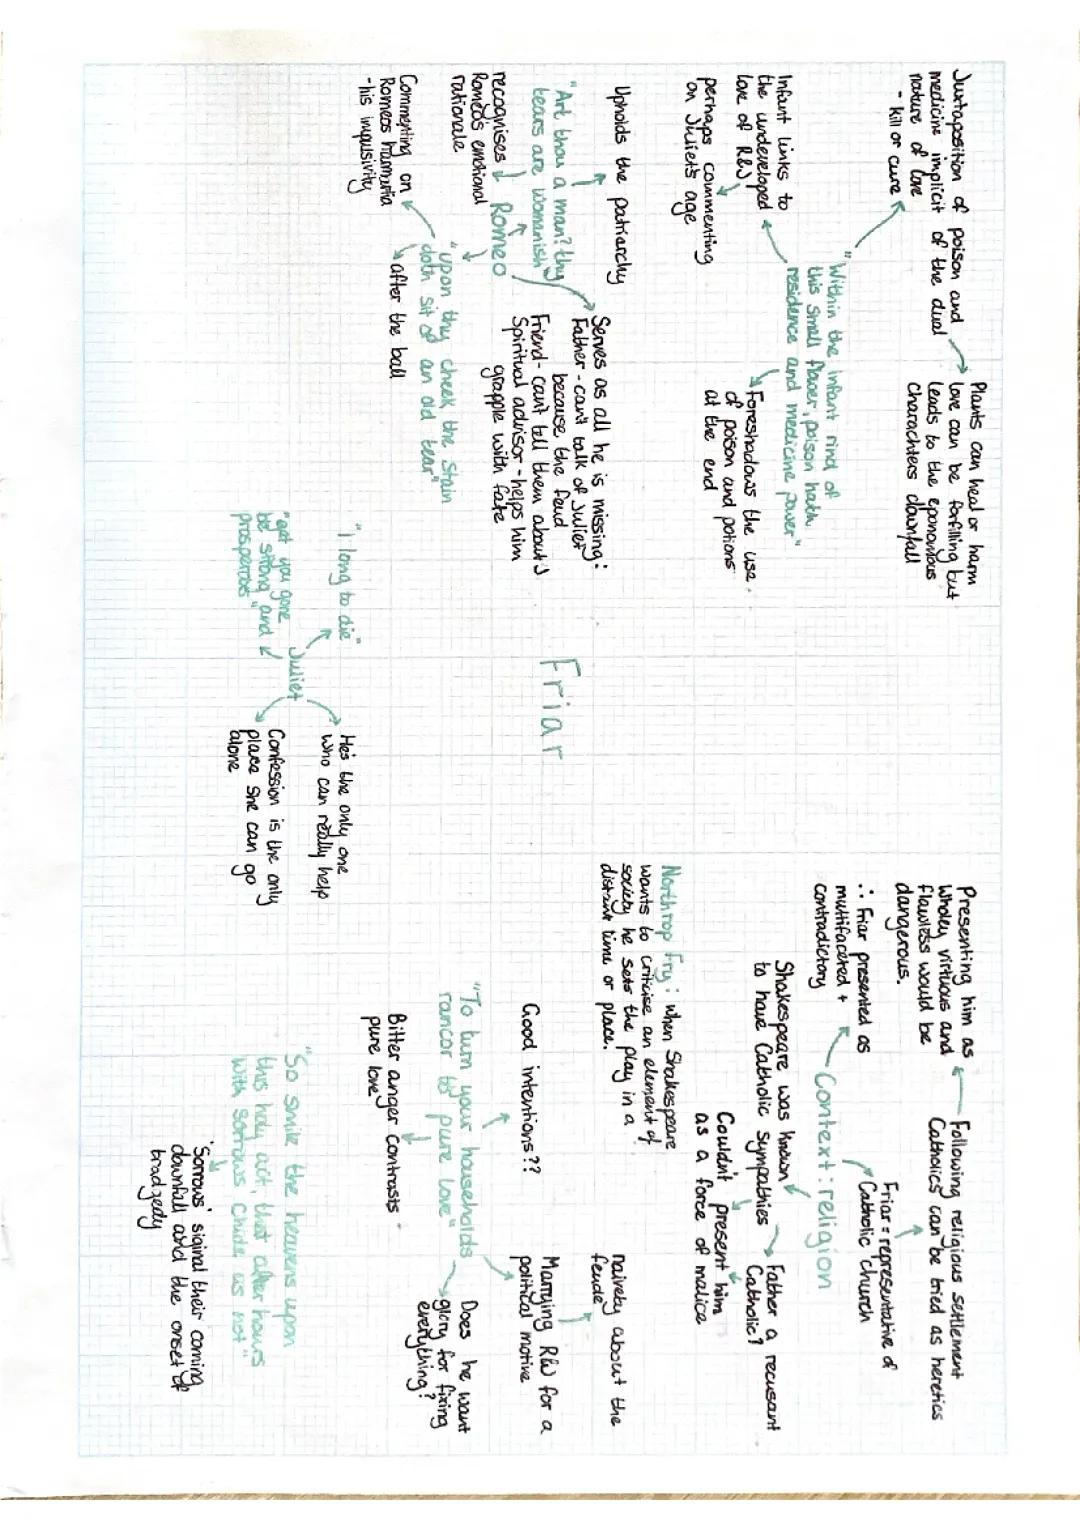 Juxtaposition of poison and
medicine implicit of the dual
nature of love
- kill or cure
Plants can heal or harm
love can be forfilling but
leads to the eponomous
charachters downfall
"Within the infant rind of
this small flower, poison hath
residence and medicine power"
Infant links to
the undeveloped
love of R&J
perhaps commenting
on Juliet's age
Foreshadows the use
of poison and potions
at the end
Upholds the patriarchy
"Art thou a man? thy
tears are womanish
recognises
Romeo's emotional
rationale
Romeo
Serves as all he is missing:
Father - can't talk of Juliet
because the feud
Friend - can't tell them about J
Spiritual advisor - helps him
grapple with fate
"upon thy cheek the stain
doth sit of an old tear"
Commenting on
Romeos hamartia
- his impulsivity
after the ball
Friar
"I long to die"
Juliet
"get you gone
be strong and
prosperous"
He's the only one
who can really help
Confession is the only
place she can go
alone
Presenting him as
wholey virtuous and
flawless would be
dangerous.
∴ Friar presented as
multifaceted +
contradictory
Following religious settlement
Catholics can be tried as heretics
Friar = representative of
Catholic church
Context: religion
Shakespeare was known
to have Catholic sympathies
Father a recusant
Catholic?
Couldn't present him
as a force of malice
Northrop Fry: when Shakespeare
wants to criticise an element of
society he sets the play in a
distant time or place.
naivety about the
feude
Good intentions??
Marrying R&J for a
political motive
"To turn your households
rancor to pure love"
Does he want
glory for fixing
everything?
Bitter anger contrasts
pure love
"So smile the heavens upon
this holy act, that after hours
with sorrows chide us not"
'Sorrows' siginal their coming
downfall and the onset of
tradgedy